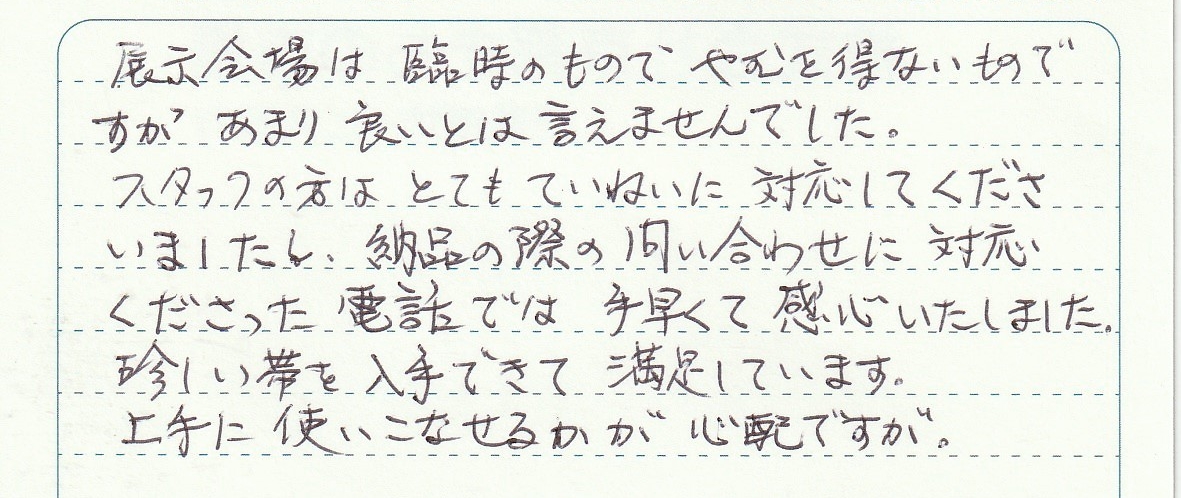 展示会場は 臨時のもので やむを得ないもので
すが あまり 良いとは 言えませんでした。
スタッフの方は とても ていねいに 対応してくださ
いましたし、納品の際の 問い合わせに 対応
くださった 電話では 手早くて 感心いたしました。
珍しい帯を 入手できて 満足しています。
上手に 使いこなせるかが 心配ですが。